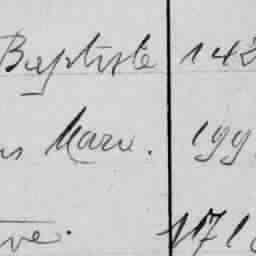 Baptiste 142
us Marie. 199
ve. 171